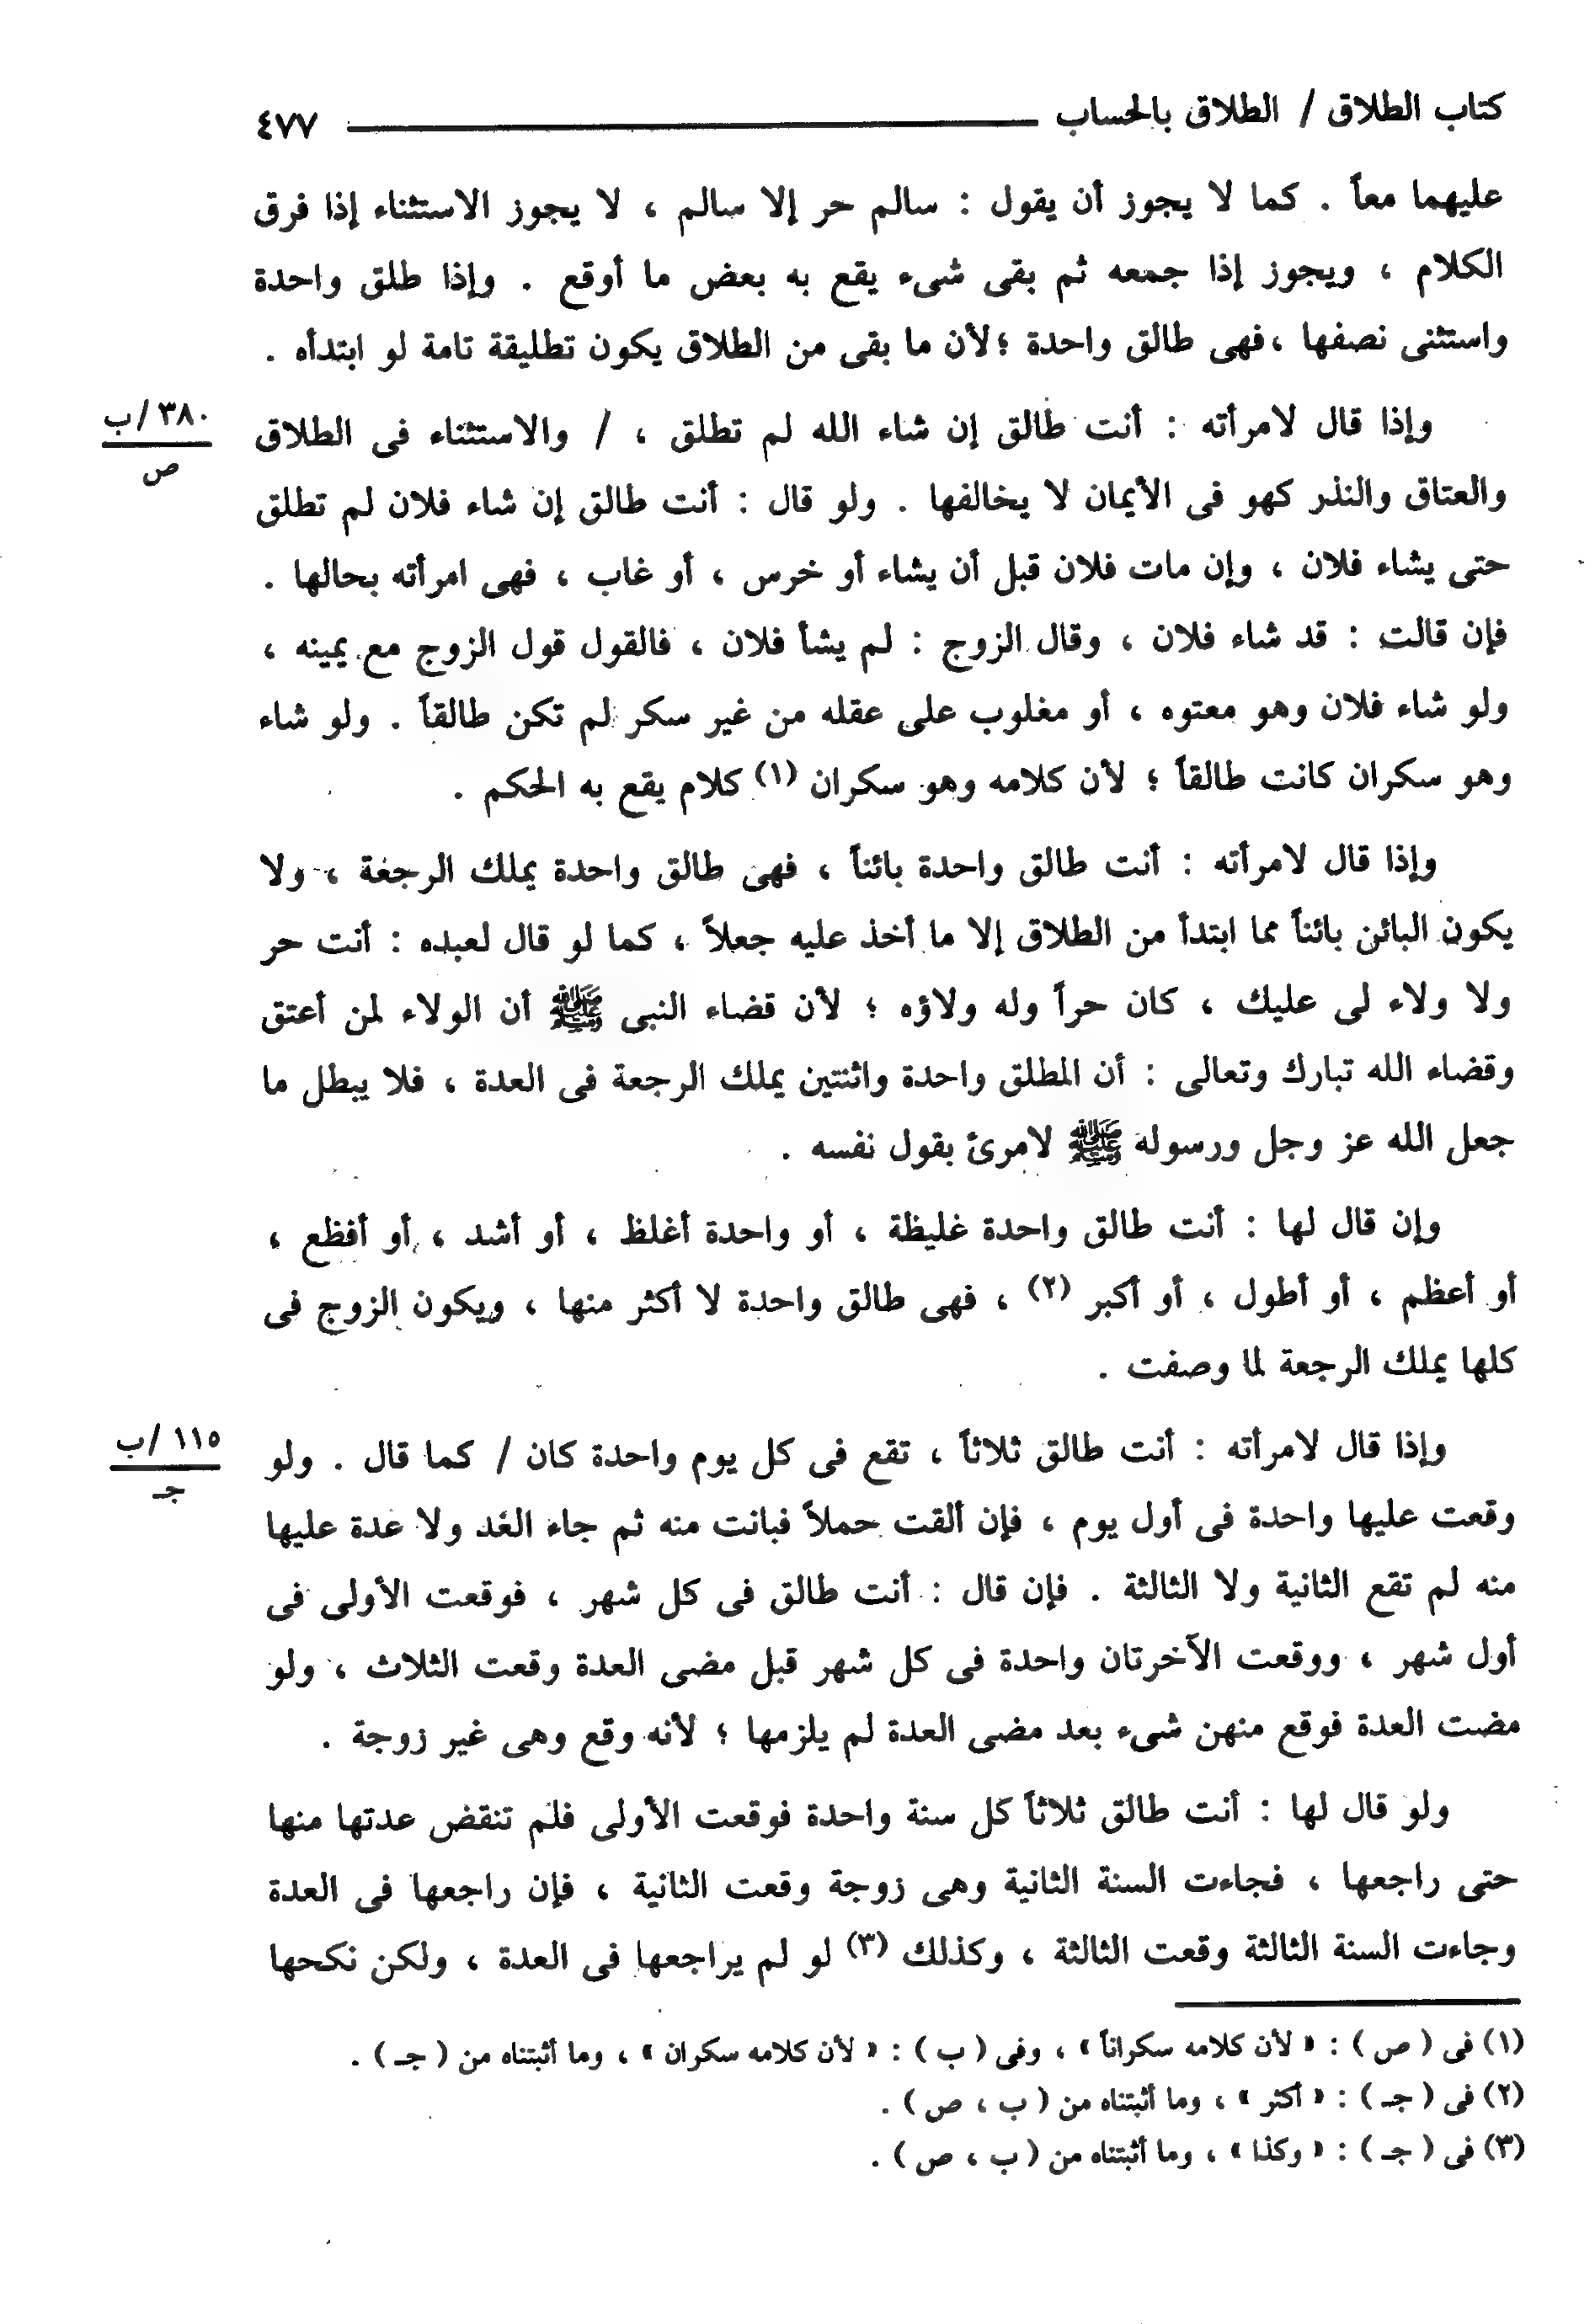 كتاب الطلاق / الطلاق بالحساب ٤٧٧
عليهما معاً . كما لا يجوز أن يقول : سالم حر إلا سالم ، لا يجوز الاستثناء إذا فرق
الكلام ، ويجوز إذا جمعه ثم بقى شىء يقع به بعض ما أوقع . وإذا طلق واحدة
واستثنى نصفها ،فهى طالق واحدة ؛لأن ما بقى من الطلاق يكون تطليقة تامة لو ابتدأه .
وإذا قال لامرأته : أنت طالق إن شاء الله لم تطلق ، / والاستثناء فى الطلاق
٣٨٠/ب
ص
والعتاق والنذر كهو فى الأيمان لا يخالفها . ولو قال : أنت طالق إن شاء فلان لم تطلق
حتى يشاء فلان ، وإن مات فلان قبل أن يشاء أو خرس ، أو غاب ، فهى امرأته بحالها .
فإن قالت : قد شاء فلان ، وقال الزوج : لم يشأ فلان ، فالقول قول الزوج مع يمينه ،
ولو شاء فلان وهو معتوه ، أو مغلوب على عقله من غير سكر لم تكن طالقاً . ولو شاء
وهو سكران كانت طالقاً ؛ لأن كلامه وهو سكران (١) كلام يقع به الحكم .
وإذا قال لامرأته : أنت طالق واحدة بائناً ، فهى طالق واحدة يملك الرجعة ، ولا
يكون البائن بائناً مما ابتدأ من الطلاق إلا ما أخذ عليه جعلاً ، كما لو قال لعبده : أنت حر
ولا ولاء لى عليك ، كان حراً وله ولاؤه ؛ لأن قضاء النبى ﷺ أن الولاء لمن أعتق
وقضاء الله تبارك وتعالى : أن المطلق واحدة واثنتين يملك الرجعة فى العدة ، فلا يبطل ما
جعل الله عز وجل ورسوله ﷺ لامرئ بقول نفسه .
وإن قال لها : أنت طالق واحدة غليظة ، أو واحدة أغلظ ، أو أشد ، أو أفظع ،
أو أعظم ، أو أطول ، أو أكبر (٢) ، فهى طالق واحدة لا أكثر منها ، ويكون الزوج فى
كلها يملك الرجعة لما وصفت .
وإذا قال لامرأته : أنت طالق ثلاثاً ، تقع فى كل يوم واحدة كان / كما قال . ولو
١١٥/ب
جـ
وقعت عليها واحدة فى أول يوم ، فإن ألقت حملاً فبانت منه ثم جاء الغد ولا عدة عليها
منه لم تقع الثانية ولا الثالثة . فإن قال : أنت طالق فى كل شهر ، فوقعت الأولى فى
أول شهر ، ووقعت الآخرتان واحدة فى كل شهر قبل مضى العدة وقعت الثلاث ، ولو
مضت العدة فوقع منهن شىء بعد مضى العدة لم يلزمها ؛ لأنه وقع وهى غير زوجة .
ولو قال لها : أنت طالق ثلاثاً كل سنة واحدة فوقعت الأولى فلم تنقض عدتها منها
حتى راجعها ، فجاءت السنة الثانية وهى زوجة وقعت الثانية ، فإن راجعها فى العدة
وجاءت السنة الثالثة وقعت الثالثة ، وكذلك (٣) لو لم يراجعها فى العدة ، ولكن نكحها
(١) فى ( ص ) : « لأن كلامه سكراناً » ، وفى ( ب ) : « لأن كلامه سكران » ، وما أثبتناه من ( جـ ) .
(٢) فى ( جـ ) : « أكثر » ، وما أثبتناه من ( ب ، ص ) .
(٣) فى ( جـ ) : « وكذا » ، وما أثبتناه من ( ب ، ص ) .